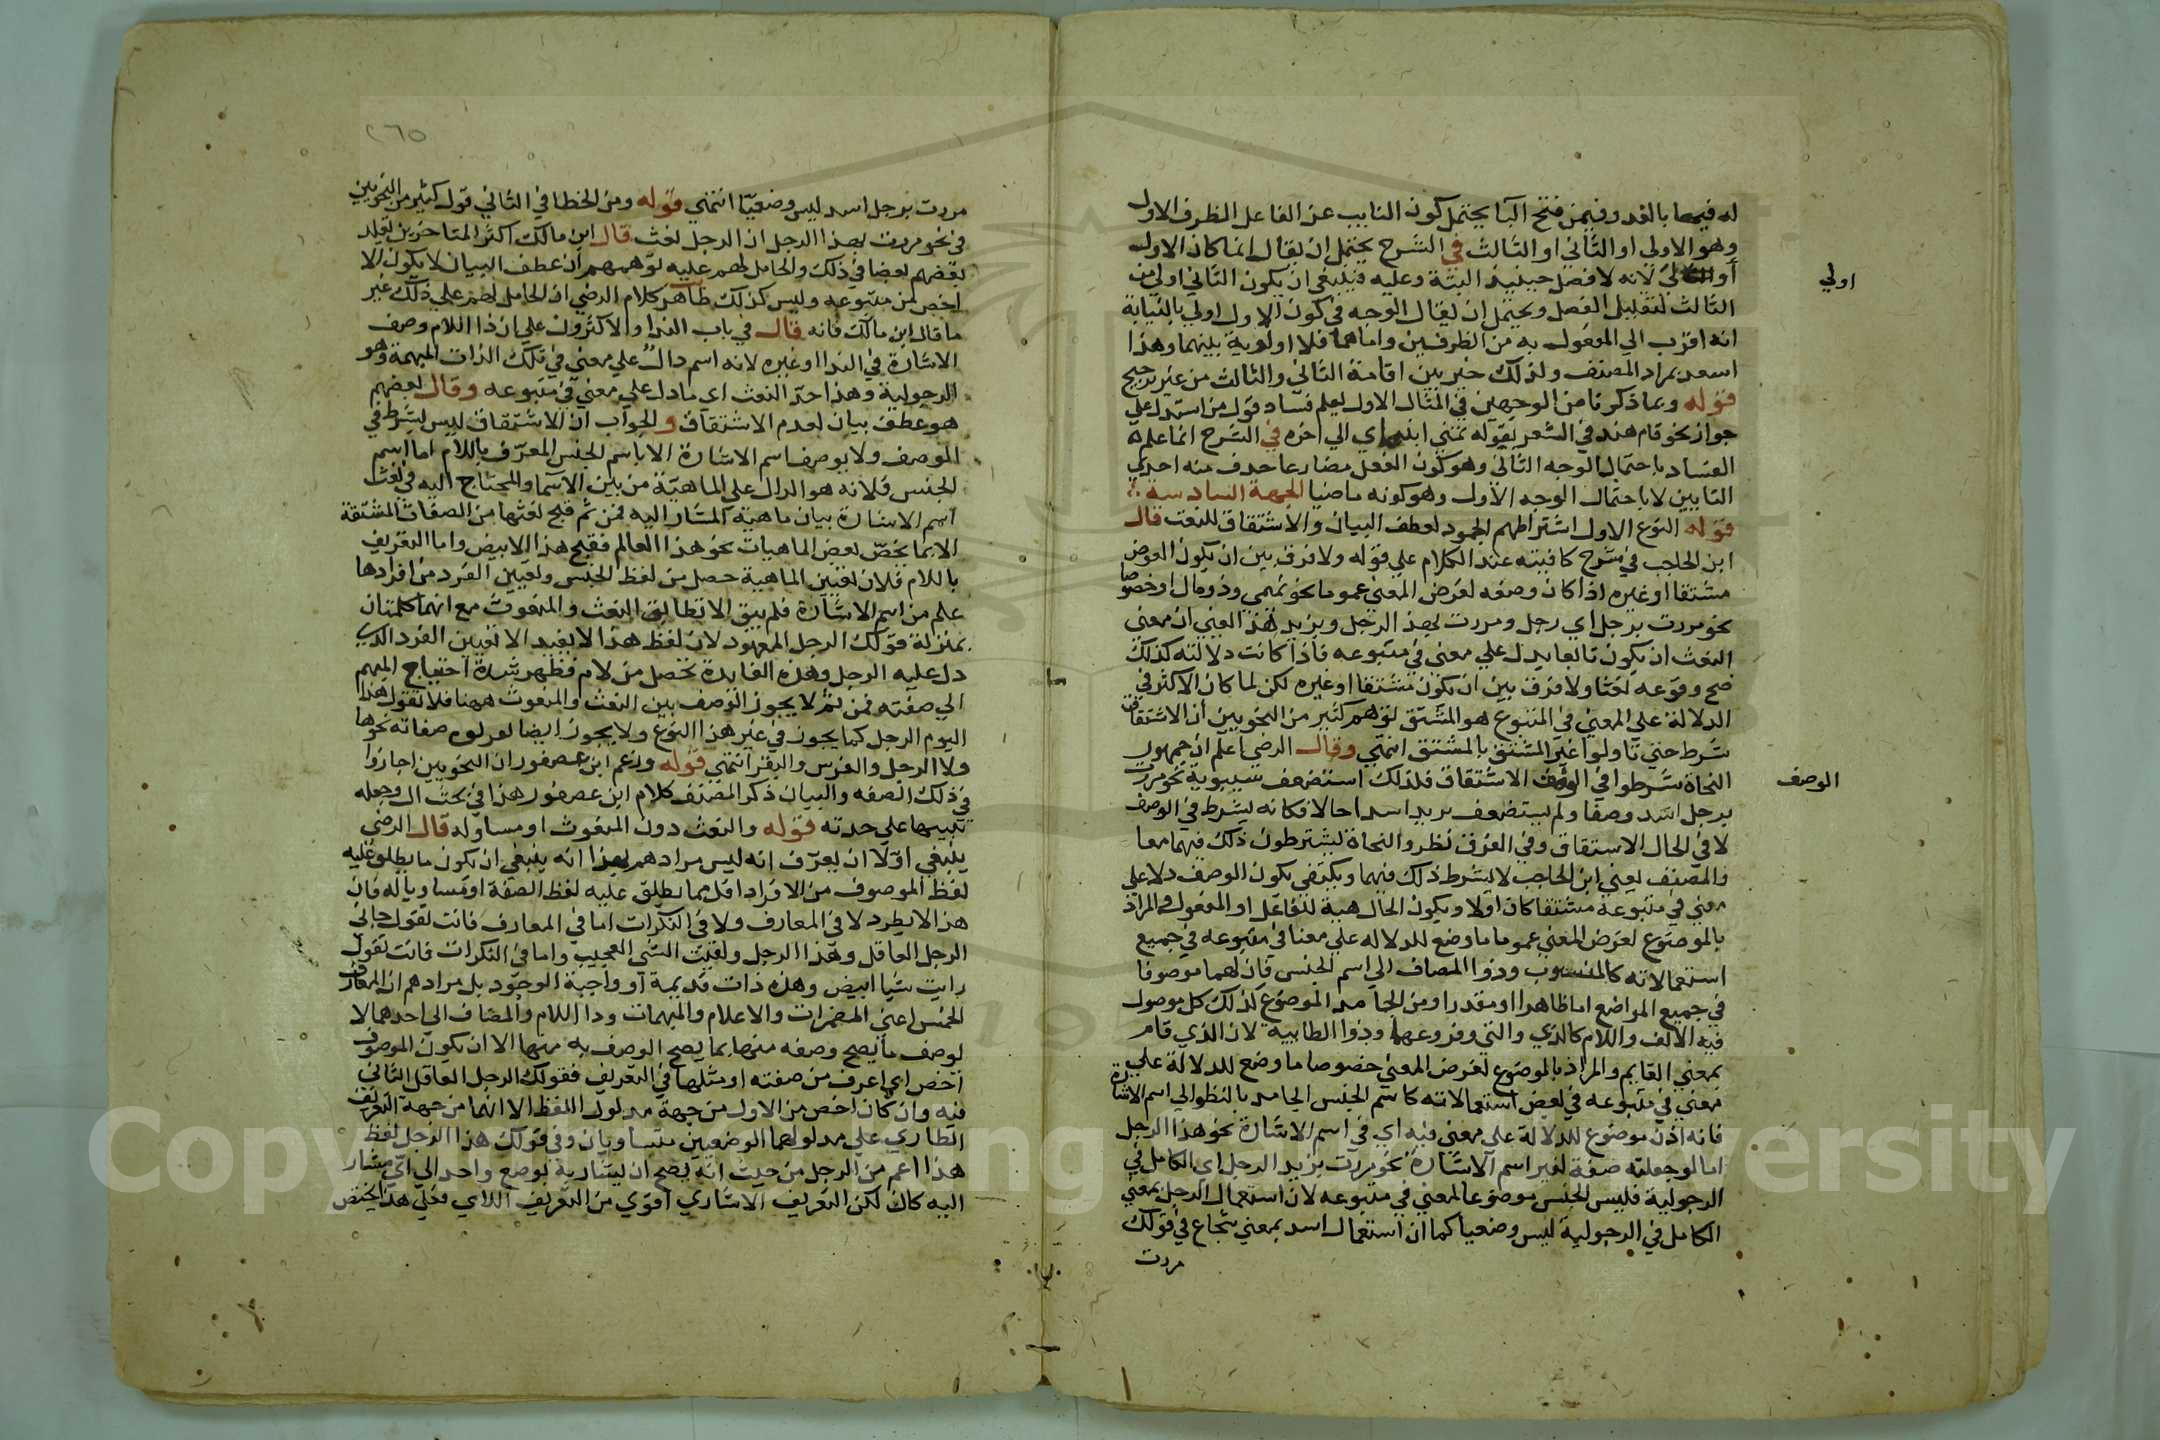 له فيهما بالغدو وفيمن فتح البا يحتمل كون النايب عن الفاعل الظرف الاول
وهو الاولي او الثاني او الثالث في الشرح يحتمل ان يقال انما كان الاول
اولي لانه لا فصل حينيذ البتة وعليه فينبغي ان يكون الثاني اولي من
اولي
الثالث لتقليل الفصل ويحتمل ان يقال الوجه في كون الاول اولي بالنيابة
انه اقرب الي المفعول به من الظرفين واما هما فلا اولوية بينهما وهذا
اسعد بمراد المصنف ولذلك خير بين اقامة الثاني والثالث من غير ترجيح
قوله وبما ذكرنا من الوجهين في المثال الاول يعلم فساد قول من استدل علي
جواز نحو قام هند في الشعر بقوله تمني ابنتاي الي اخره في الشرح انما علم
الفساد باحتمال الوجه الثاني وهو كون الفعل مضارعا حذف منه احدي
التايين لا باحتمال الوجه الاول وهو كونه ماضيا الجهة السادسة
قوله النوع الاول اشتراطهم الجمود لعطف البيان والاشتقاق للنعت قال
ابن الحاجب في شرح كافيته عند الكلام علي قوله ولا فرق بين ان يكون
مشتقا او غيره اذا كان وضعه لغرض المعني عموما نحو تميمي وذو مال او خصوصا
نحو مررت برجل اي رجل ومررت بهذا الرجل وبزيد هذا يعني ان معني
النعت ان يكون تابعا يدل علي معني في متبوعه فاذا كانت دلالته كذلك
صح وقوعه نعتا ولا فرق بين ان يكون مشتقا او غيره لكن لما كان الاكثر في
الدلالة علي المعني في المتبوع هو المشتق توهم كثير من النحويين ان الاشتقاق
شرط حتي تاولوا غير المشتق بالمشتق انتهي وقال الرضي اعلم ان جمهور
النحاة شرطوا في الوصف الاشتقاق فلذلك استضعف سيبويه نحو مررت
الوصف
برجل اسد وصفا ولم يستضعف بزيد اسدا حالا فكانه يشرط في الوصف
لا في الحال الاشتقاق وفي الفرق نظر والنحاة يشترطون ذلك فيهما معا
والمصنف يعني ابن الحاجب لا يشرط ذلك فيهما ويكتفي بكون الوصف دالا علي
معني في متبوعه مشتقا كان اولا وبكون الحال هيئة للفاعل او المفعول والمراد
بالموضوع لغرض المعني عموما ما وضع للدلاله علي معنا في متبوعه في جميع
استعمالاته كالمنسوب وذو المضاف الي اسم الجنس فان لهما موصوفا
في جميع المواضع اما ظاهرا او مقدرا ومن الجامد الموضوع كذلك كل موصول
فيه الالف واللام كالذي والتي وفروعهما وذو الطايية لان الذي قام
بمعني القايم والمراد بالموضوع لغرض المعني خصوصا ما وضع للدلالة علي
معني في متبوعه في بعض استعمالاته كاسم الجنس الجامد بالنظر الي اسم الاشارة
فانه اذن موضوع للدلالة علي معني فيه اي في اسم الاشارة نحو هذا الرجل
اما لو جعلته صفة لغير اسم الاشارة نحو مررت بزيد الرجل اي الكامل في
الرجولية فليس الجنس موضوعا لمعني في متبوعه لان استعمال الرجل بمعني
الكامل في الرجولية ليس وضعيا كما ان استعمال اسد بمعني شجاع في قولك
مررت
٢٦٥
مررت برجل اسد ليس وضعيا انتهي قوله ومن الخطا في الثاني قول كثير من النحويين
في نحو مررت بهذا الرجل ان الرجل نعت قال ابن مالك اكثر المتاخرين يقلد
بعضهم بعضا في ذلك والحامل لهم عليه توهمهم ان عطف البيان لا يكون الا
اخص من متبوعه وليس كذلك ظاهر كلام الرضي ان الحامل لهم علي ذلك غير
ما قال ابن مالك فانه قال في باب الندا والاكثرون علي ان ذا اللام وصف
الاشارة في الندا وغيره لانه اسم دال علي معني في تلك الذات المبهمة وهو
الرجولية وهذا حد النعت اي ما دل علي معني في متبوعه وقال بعضهم
هو عطف بيان لعدم الاشتقاق والجواب ان الاشتقاق ليس بشرط في
الموصف ولا يوصف اسم الاشارة الا باسم الجنس المعرف باللام اما اسم
الجنس فلانه هو الدال علي الماهية من بين الاسما والمحتاج اليه في نعت
اسم الاشارة بيان ماهية المشار اليه فمن ثم قبح نعتها من الصفات المشتقة
الا بما يخص بعض الماهيات نحو هذا العالم فقبح هذا الابيض واما التعريف
باللام فلان تعيين الماهية حصل من لفظ الجنس وتعيين الفرد من افرادها
علم من اسم الاشارة فلم يبق الا تطابق النعت والمنعوت مع انهما كلمتان
بمنزلة قولك الرجل المعهود لان لفظ هذا لا يفيد الا تعيين الفرد الذي
دل عليه الرجل وهذه الفايدة تحصل من لام فظهر شدة احتياج المبهم
الي صفته فمن ثم لا يجوز الفصف بين النعت والمنعوت ههنا فلا تقول هذا
اليوم الرجل كما يجوز في غير هذا النوع ولا يجوز ايضا صفاته نحو
ولا الرجل والفرس والبقر انتهي قوله وزعم ابن عصفور ان النحويين اجازوا
في ذلك الصفه والبيان ذكر المصنف كلام ابن عصفور هذا في بحث ال وجعله
تنبيها علي حدته قوله والنعت دون المنعوت او مساو له قال الرضي
ينبغي اولا ان يعرف انه ليس مرادهم بهذا انه ينبغي ان يكون ما يطلق عليه
لفظ الموصوف من الافراد اقل مما يطلق عليه لفظ الصفة او مساويا له فان
هذا لا يطرد لا في المعارف ولا في النكرات اما في المعارف فانت تقول جاني
الرجل العاقل وهذا الرجل ولقيت الشي العجيب واما في النكرات فانت تقول
رايت شيا ابيض وهذه ذات قديمة او واجبة الوجود بل مرادهم ان المعارف
الخمس اعني المضمرات والاعلام والمبهمات وذا اللام والمضاف الي احدهما لا
يوصف ما يصح وصفه منها بما يصح الوصف به منها الا ان يكون الموصوف
اخص اي اعرف من صفته او مثلها في التعريف فقولك الرجل العاقل الثاني
فيه وان كان اخص من الاول من جهة مدلول اللفظ الا انهما من جهة التعريف
الطاري علي مدلولهما الوضعيين متساويان وفي قولك هذا الرجل لفظ
هذا اعم من الرجل من حيث انه يصح ان يشار به لوضع واحد الي اي مشار
اليه كان لكن التعريف الاشاري اقوي من التعريف اللامي